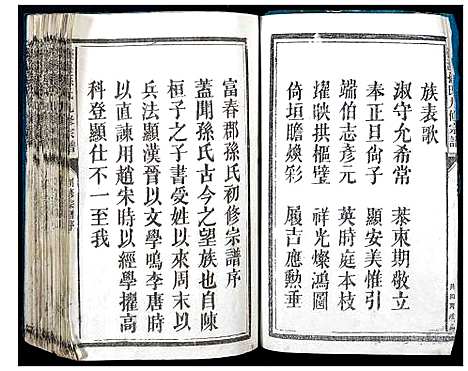 族表歌
淑守允希常　葉東期敬立
奉正旦尙子　顯安美惟引
端伯志彥元　英時庭本枝
耀映拱樞璧　祥光燦鴻圖
倚垣瞻煥彩　履吉應勲垂
富春郡孫氏初修宗譜序
蓋聞孫氏古今之望族也自陳
桓子之子書受姓以來周末以
兵法顯漢晉以文學鳴李唐時
以直諫用趙宋時以經學擢高
科登顯仕不一至我